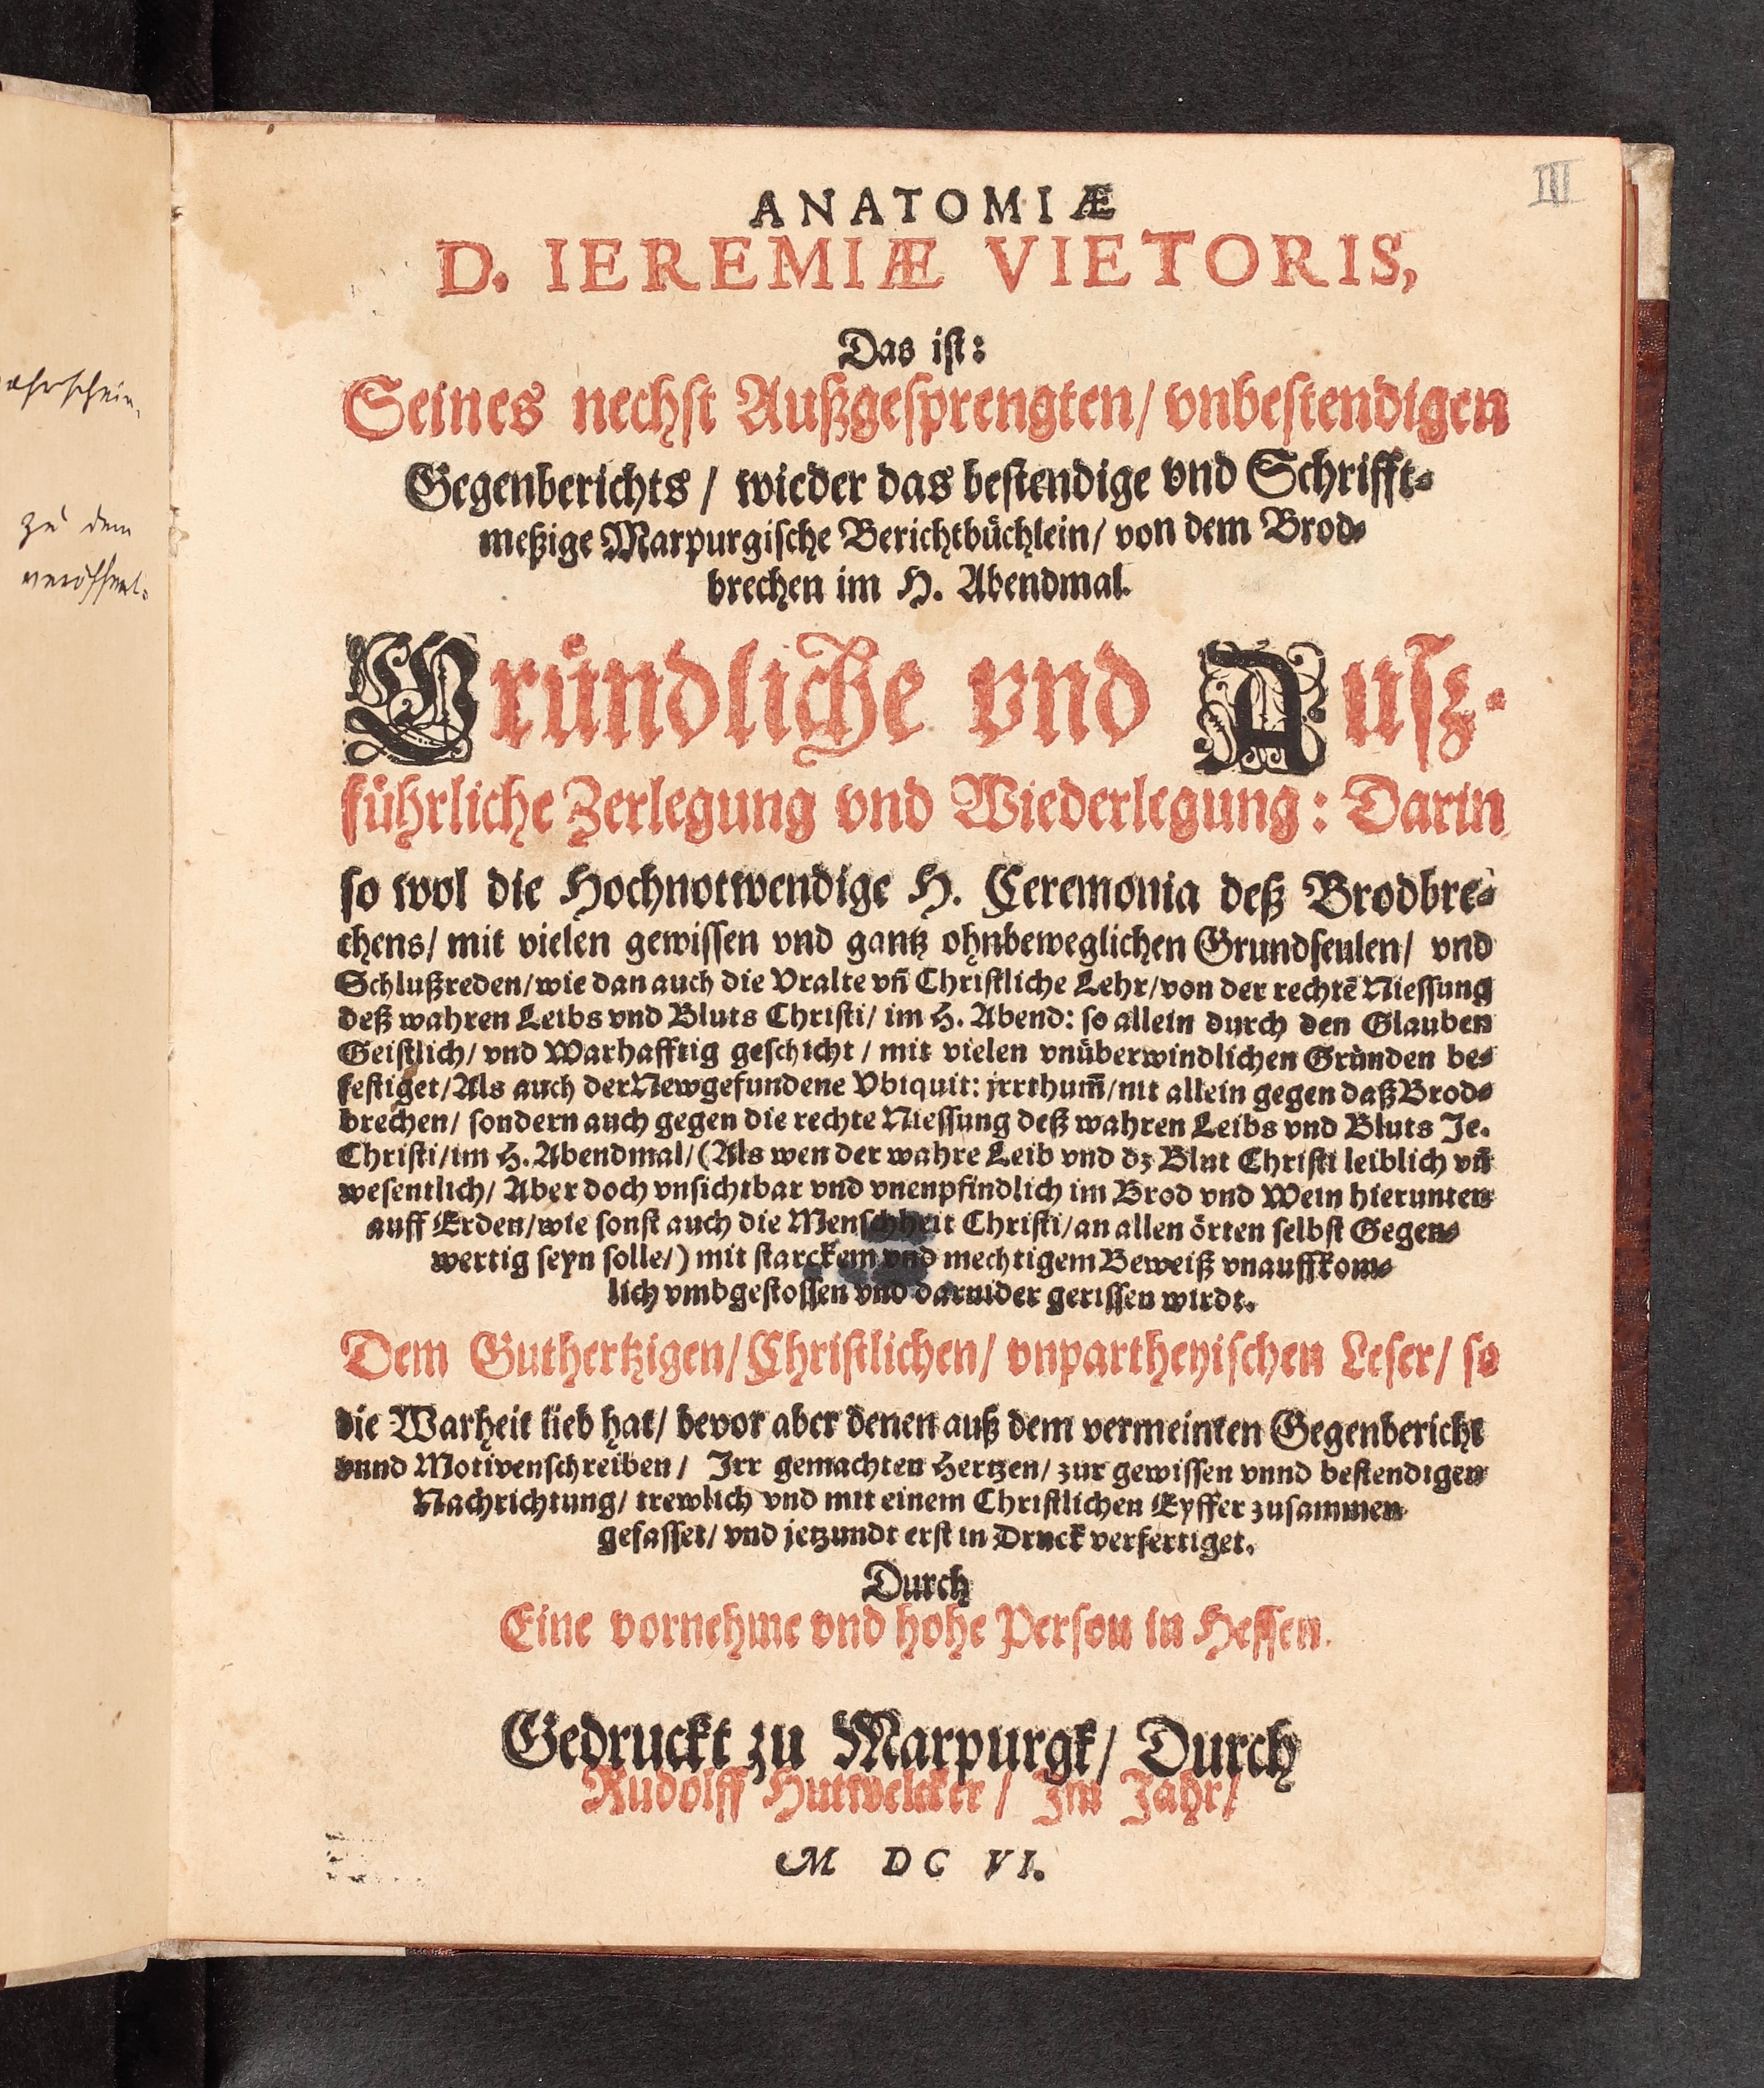 III
ANATOMIÆ
D. IEREMIÆ VIETORIS,
Das ist:
Seines nechst Außgesprengten/ vnbestendigen
Gegenberichts / wieder das bestendige vnd Schrifft-
meßige Marpurgische Berichtbüchlein/ von dem Brod-
brechen im H. Abendmal.
Gründliche vnd Ausz-
führliche Zerlegung vnd Wiederlegung: Darin
so wol die Hochnotwendige H. Ceremonia deß Brodbre-
chens/ mit vielen gewissen vnd gantz ohnbeweglichen Grundseulen/ vnd
Schlußreden/wie dan auch die Vralte vñ Christliche Lehr/von der rechtē Niessung
deß wahren Leibs vnd Bluts Christi/ im H. Abend: so allein durch den Glauben
Geistlich/ vnd Warhafftig geschicht / mit vielen vnüberwindlichen Gründen be-
festiget/Als auch der Newgefundene Vbiquit: jrrthum̄/nit allein gegen daß Brod-
brechen/ sondern auch gegen die rechte Niessung deß wahren Leibs vnd Bluts Je.
Christi/im H. Abendmal/(Als wen der wahre Leib vnd dz Blut Christi leiblich vñ
wesentlich/ Aber doch vnsichtbar vnd vnenpfindlich im Brod vnd Wein hierunten
auff Erden/wie sonst auch die Menschheit Christi/an allen örten selbst Gegen-
wertig seyn solle/) mit starckem vnd mechtigem Beweiß vnauffkom-
lich vmbgestossen vnd darnider gerissen wirdt.
Dem Guthertzigen/Christlichen/ vnpartheyischen Leser/ so
die Warheit lieb hat/ bevor aber denen auß dem vermeinten Gegenbericht
vnnd Motivenschreiben / Irr gemachten Hertzen/ zur gewissen vnnd bestendigen
Nachrichtung/ trewlich vnd mit einem Christlichen Eyffer zusammen
gefasset/ vnd jetzundt erst in Druck verfertiget.
Durch
Eine vornehme vnd hohe Person in Hessen.
Gedruckt zu Marpurgk/ Durch
Rudolff Hutwelcker / Im Jahr/
M DC VI.
zu dem